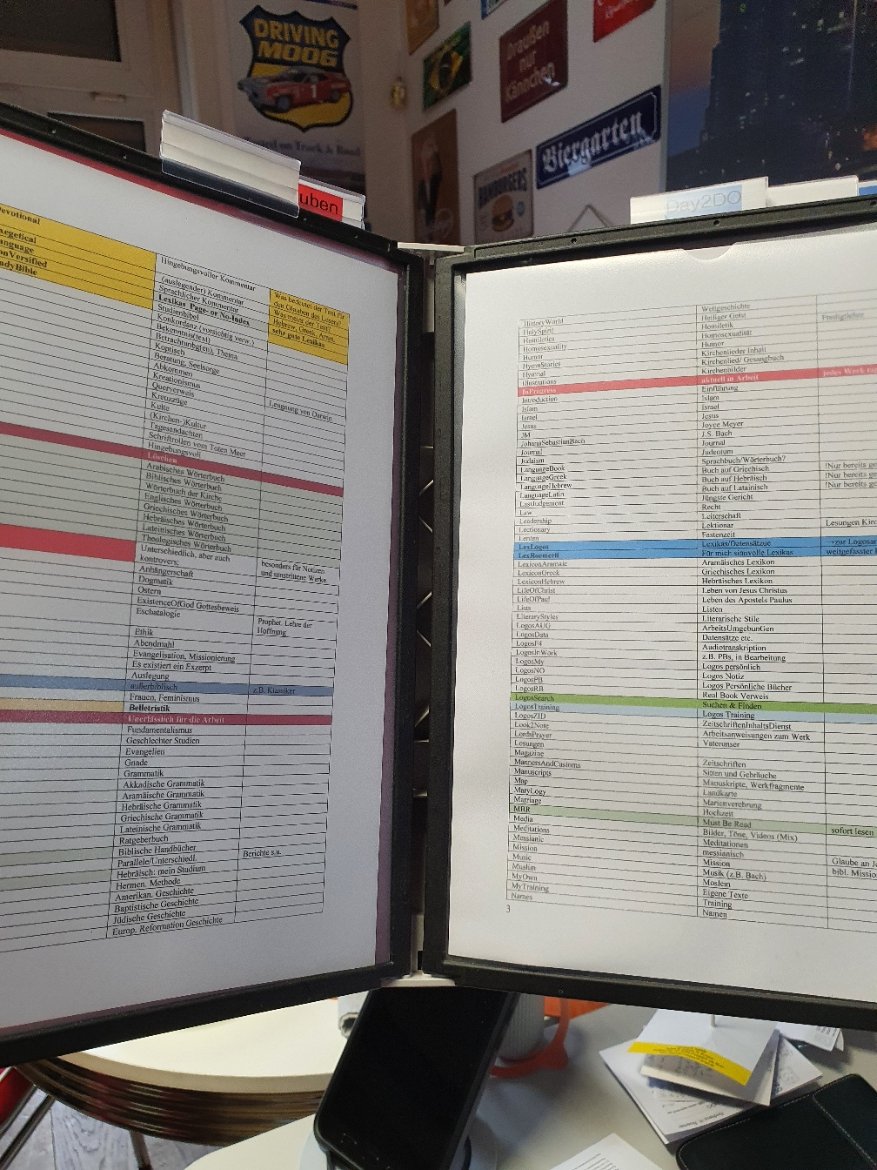 DRIVING
MOOG
1
on Track & Road
Draußen
nur
Kännchen
Biergarten
HAMBURGERS
uben
Day2DO
Devotional
Hingebungsvoller Kommentar
Was bedeutet der Text für
den Glauben des Lesers?
(auslegender) Kommentar
Was meint der Text?
Sprachlicher Kommentar
Lexikas Page- or No-Index
sehr gute Lexikas
Studienbibel
Konkordanz (vorsichtig verw.)
Bekenntnis(text)
Betrachtung(sten), Thema
Koptisch
Beratung, Seelsorge
Abkommen
Kreationismus
Leugnung von Darwin
Querverweis
Kreuzzüge
Kulte
(Kirchen-)Kultur
Tagesandachten
Schriftrollen vom Toten Meer
Hingebungsvoll
Löschen
Arabisches Wörterbuch
Biblisches Wörterbuch
Wörterbuch der Kirche
Englisches Wörterbuch
Griechisches Wörterbuch
Hebräisches Wörterbuch
Lateinisches Wörterbuch
Theologisches Wörterbuch
Unterschiedlich, aber auch
kontrovers;
besonders für Notizen
und umstrittene Werke.
Anhängerschaft
Dogmatik
Ostern
ExistenceOfGod Gottesbeweis
Eschatalogie
Prophet. Lehre der
Hoffnung
Ethik
Abendmahl
Evangelisation, Missionierung
Es existiert ein Exzerpt
Auslegung
außerbiblisch z.B. Klassiker
Frauen, Feminismus
Belletristik
Unerlässlich für die Arbeit
Fundamentalismus
Geschlechter Studien
Evangelien
Gnade
Grammatik
Akkadische Grammatik
Aramäische Grammatik
Hebräische Grammatik
Griechische Grammatik
Lateinische Grammatik
Ratgeberbuch
Biblische Handbücher
Berichte s.a.
Parallele/Unterschiedl.
Hebräisch: mein Studium
Hermen. Methode
Amerikan. Geschichte
Baptistische Geschichte
Jüdische Geschichte
Europ. Reformation Geschichte
HistoryWorld Weltgeschichte
HolySpirit Heiliger Geist
Homiletics Homiletik
Homosexuality Homosexualität
Humor Humor
HymnStories Kirchenlieder Inhalt
Hymnal Kirchenlied/ Gesangbuch
Illustrations Kirchenbilder
InProgress aktuell in Arbeit jedes Werk
Introduction Einführung
Islam Islam
Israel Israel
Jesus Jesus
JM Joyce Meyer
JohannSebastianBach J.S. Bach
Journal Journal
Judaism Judentum
LanguageBook Sprachbuch/Wörterbuch?
LanguageGreek Buch auf Griechisch !Nur bereits
LanguageHebrew Buch auf Hebräisch !Nur bereits
LanguageLatin Buch auf Latainisch !Nur bereits
LastJudgement Jüngste Gericht
Law Recht
Leadership Leiterschaft
Lectionary Lektionar Lesungen
Lenten Fastenzeit
LexLogos Lexikas/Datensätze
Für mich sinnvolle Lexikas weitgefasster
LexiconAramaic Aramäisches Lexikon
LexiconGreek Griechisches Lexikon
LexiconHebrew Hebräisches Lexikon
LifeOfChrist Leben von Jesus Christus
LifeOfPaul Leben des Apostels Paulus
Lists Listen
LiteraryStyles Literarische Stile
LogosAUG ArbeitsUmgebunGen
LogosData Datensätze etc.
Audiotranskription
LogosInWork z.B. PBs, in Bearbeitung
LogosMy Logos persönlich
LogosNO Logos Notiz
LogosPB Logos Persönliche Bücher
LogosRB Real Book Verweis
LogosSearch Suchen & Finden
LogosTraining Logos Training
LogosZID ZeitschriftenInhaltsDienst
Look2Note Arbeitsanweisungen zum Werk
LordsPrayer Vaterunser
Losungen
Magazine Zeitschriften
MannersAndCustoms Sitten und Gebräuche
Manuscripts Manuskripte, Werkfragmente
Map Landkarte
MaryLogy Marienverehrung
Marriage Hochzeit
MBR Must Be Read sofort lesen
Media Bilder, Töne, Videos (Mix)
Meditations Meditationen
Messianic messianisch
Mission Mission
Music Musik (z.B. Bach)
Muslim Moslem
MyOwn Eigene Texte
MyTraining Training
Names Namen
3